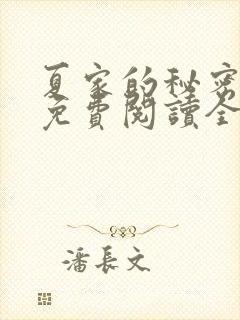 夏家的秘密
免費閱讀全
潘長文